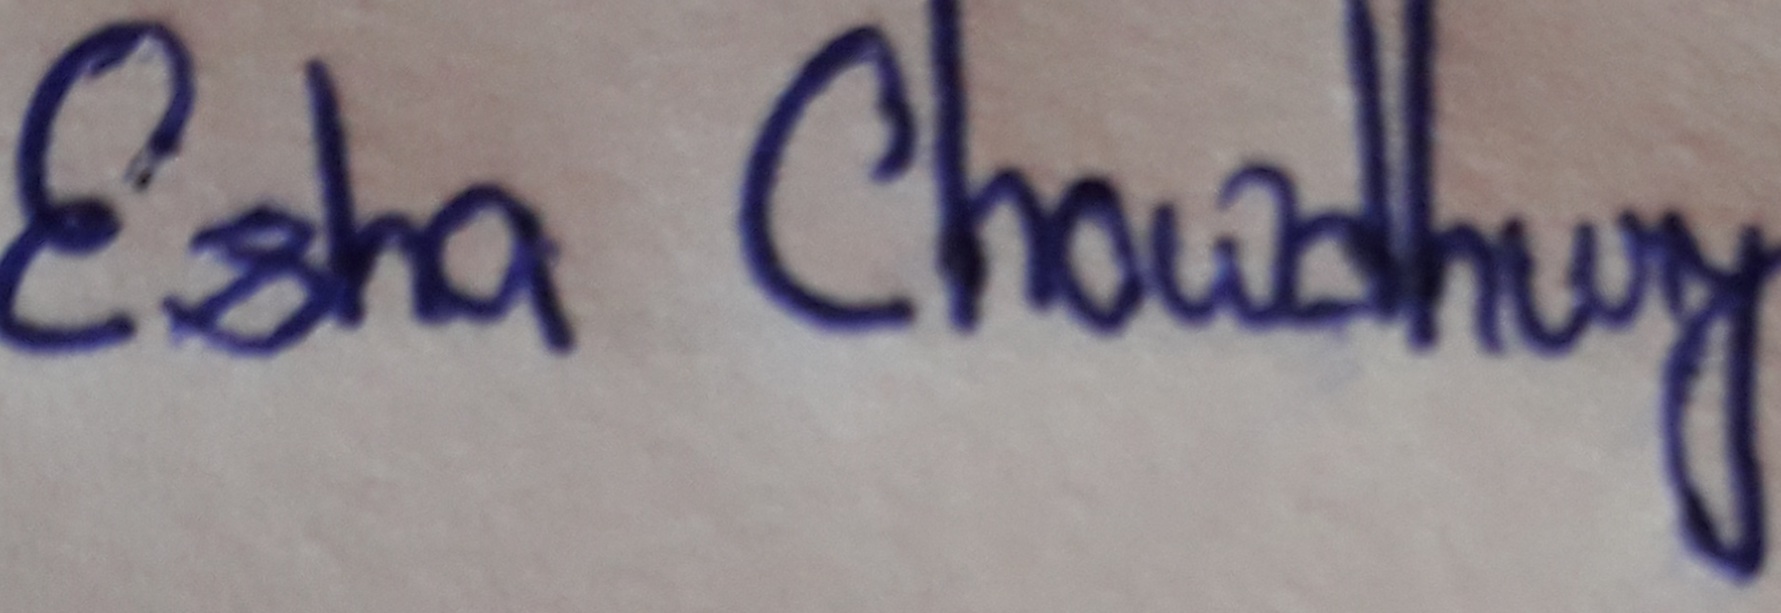 Esha Chowdhury